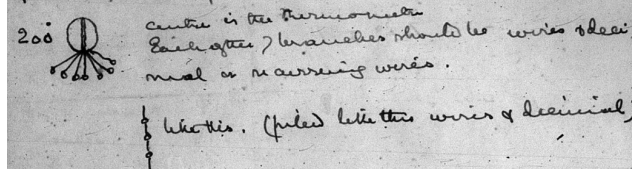 centre is the thermometer
200 Each of the 7 branches should be wires & deci
mal or recurring wires.
like this. (piled like this wires & decimal)